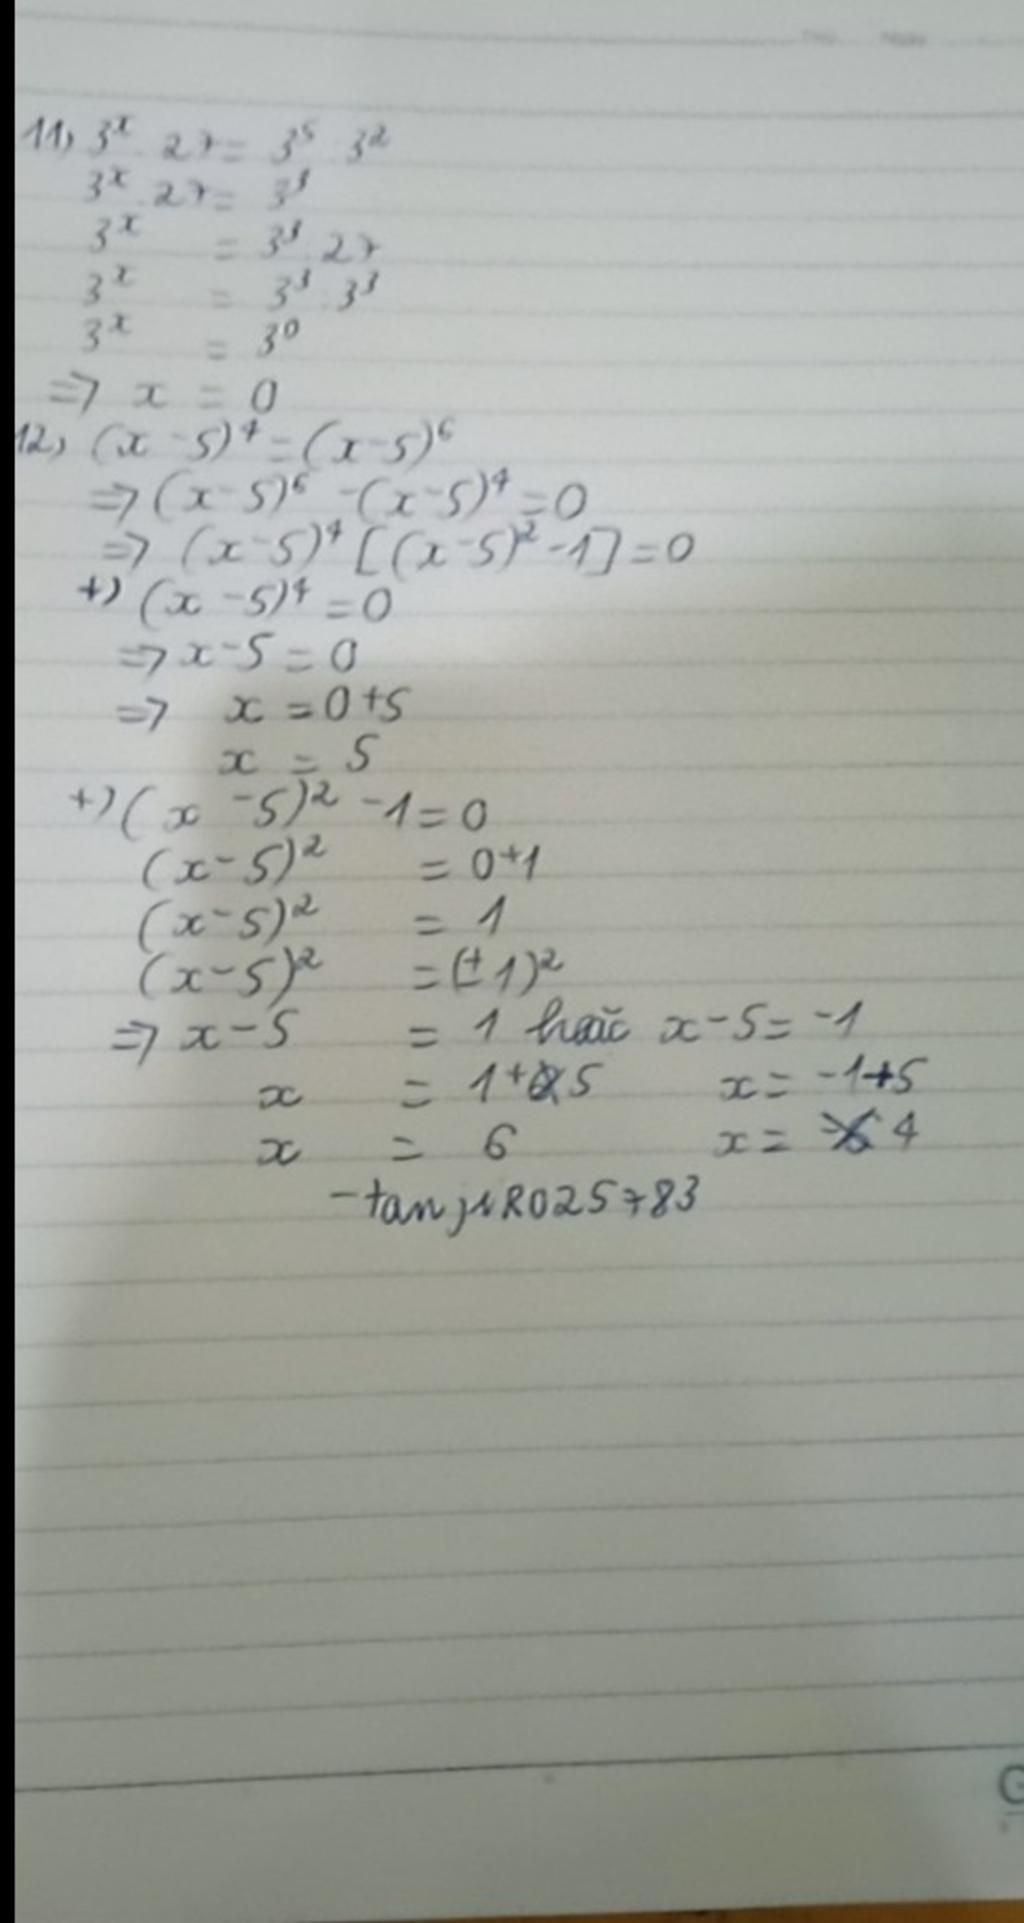 11, 3^x . 27 = 3^5 : 3^2
3^x . 27 = 3^3
3^x = 3^3 : 27
3^x = 3^3 : 3^3
3^x = 3^0
=> x = 0
12, (x - 5)^4 = (x - 5)^6
=> (x - 5)^6 - (x - 5)^4 = 0
=> (x - 5)^4 [(x - 5)^2 - 1] = 0
+) (x - 5)^4 = 0
=> x - 5 = 0
=> x = 0 + 5
x = 5
+) (x - 5)^2 - 1 = 0
(x - 5)^2 = 0 + 1
(x - 5)^2 = 1
(x - 5)^2 = (± 1)^2
=> x - 5 = 1 hoặc x - 5 = -1
x = 1 + 5 x = -1 + 5
x = 6 x = 4